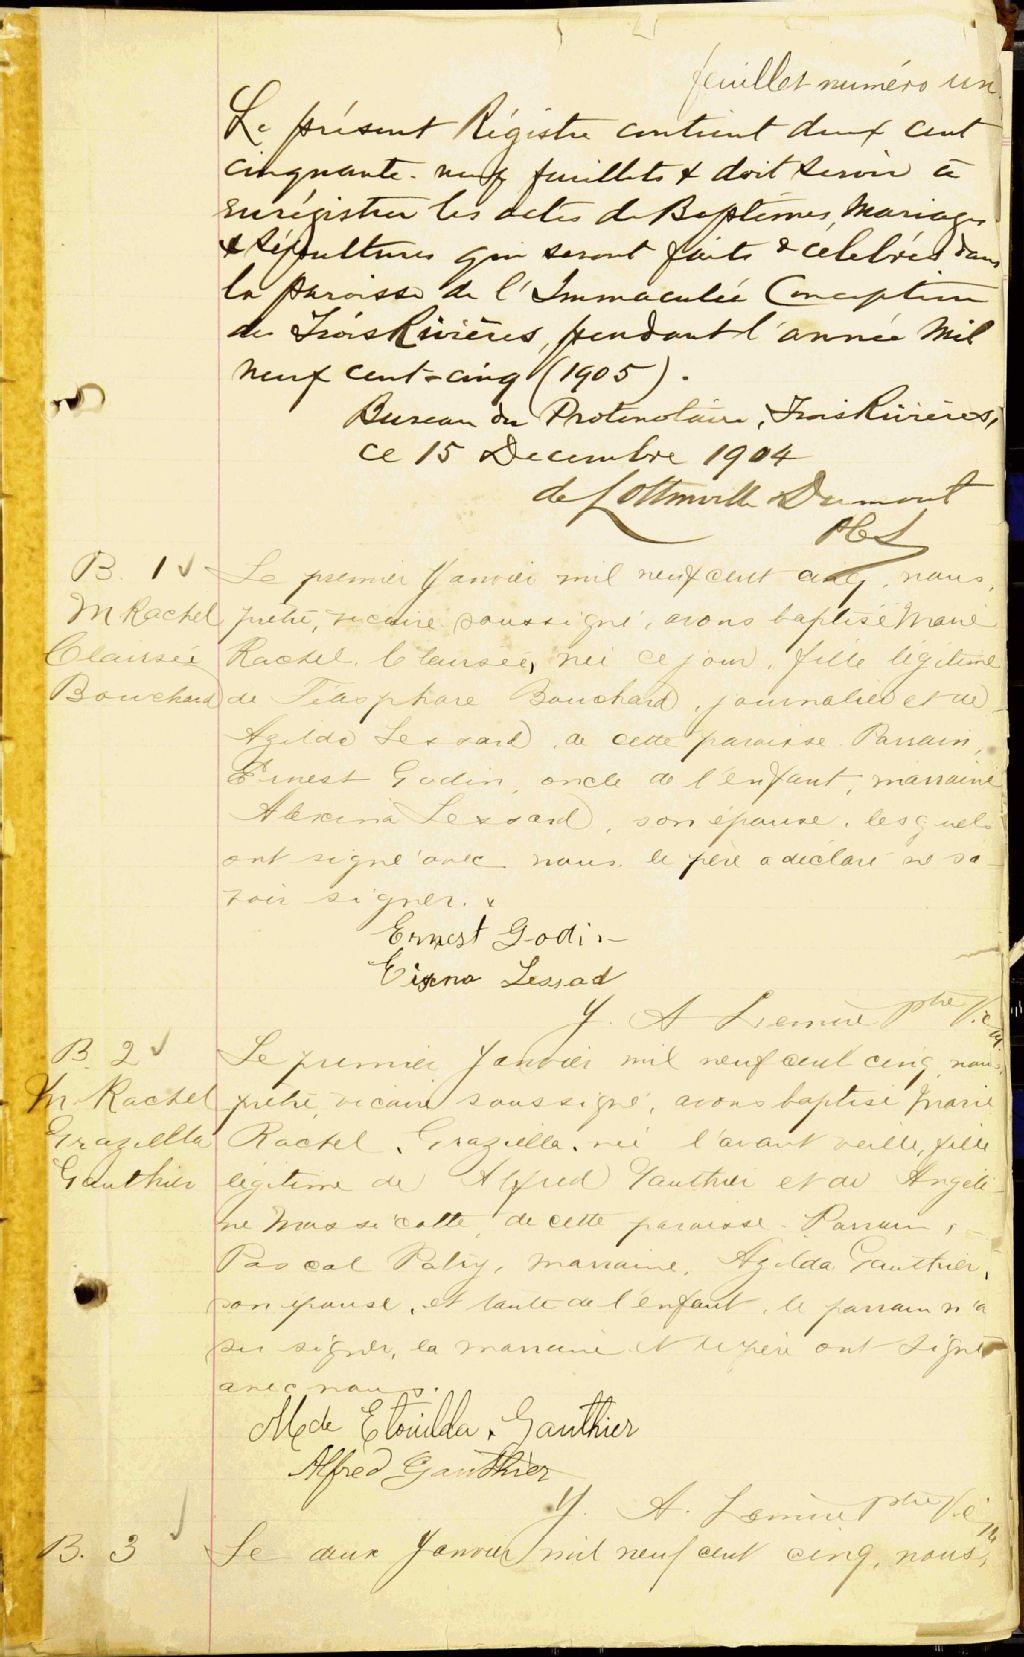 feuillet numéro un.
Le présent Régistre contient deux cent
cinquante-neuf feuillets & doit servir à
enrégistrer les actes de Baptêmes, Mariages
& Sépultures qui seront faits & célébrés dans
la paroisse de l'Immaculée Conception
des Trois Rivières, pendant l'année Mil
neuf cent-cinq (1905).
Bureau du Protonotaire, Trois Rivières,
ce 15 Decembre 1904
de Lottinville Dumont
B. 1
M Rachel
Clausée
Bouchard
Le premier Janvier mil neuf cent cinq, nous,
prêtre, vicaire soussigné, avons baptisé Marie
Rachel, Clausée, née ce jour, fille légitime
de Télesphore Bouchard, journalier et de
Azilda Lessard, de cette paroisse. Parrain,
Ernest Godin, oncle de l'enfant, marraine
Alexina Lessard, son épouse, lesquels
ont signé avec nous. le père a déclaré ne sa-
voir signer.
Ernest Godin
Eixna Lessad
J. A Lemire ptre Vic
B. 2
M Rachel
Graziella
Gauthier
Le premier Janvier mil neuf cent cinq, nous,
prêtre, vicaire soussigné, avons baptisé Marie
Rachel, Graziella, née l'avant veille, fille
légitime de Alfred Gauthier et de Angéli-
ne Massicotte, de cette paroisse. Parrain,
Pascal Patry, marraine, Azilda Gauthier,
son épouse, et tante de l'enfant, le parrain n'a
su signer, la marraine et le père ont signé
avec nous.
Mde Etouilda. Gauthier
Alfred Gauthier
J. A. Lemire ptre Vic
B. 3
Le deux Janvier mil neuf cent cinq, nous,